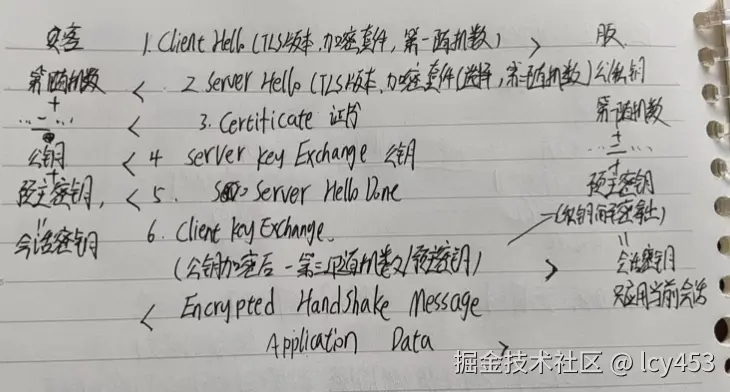 客 1. Client Hello (TLS版本,加密套件,第一随机数) > 服
第一随机数 < 2 Server Hello (TLS版本,加密套件(选择,第二随机数)
+ 第一随机数
...二... < 3. Certificate 证书 +
公钥 < 4 Server key Exchange 公钥 ...二...
+ +
预主密钥, < 5. Server Hello Done 预主密钥
=
会话密钥 6. Client key Exchange.
(公钥加密后一第三随机数/预主密钥) > 会话密钥
只应用当前会话
< Encrypted Handshake Message
Application Data >
掘金技术社区 @ lcy453